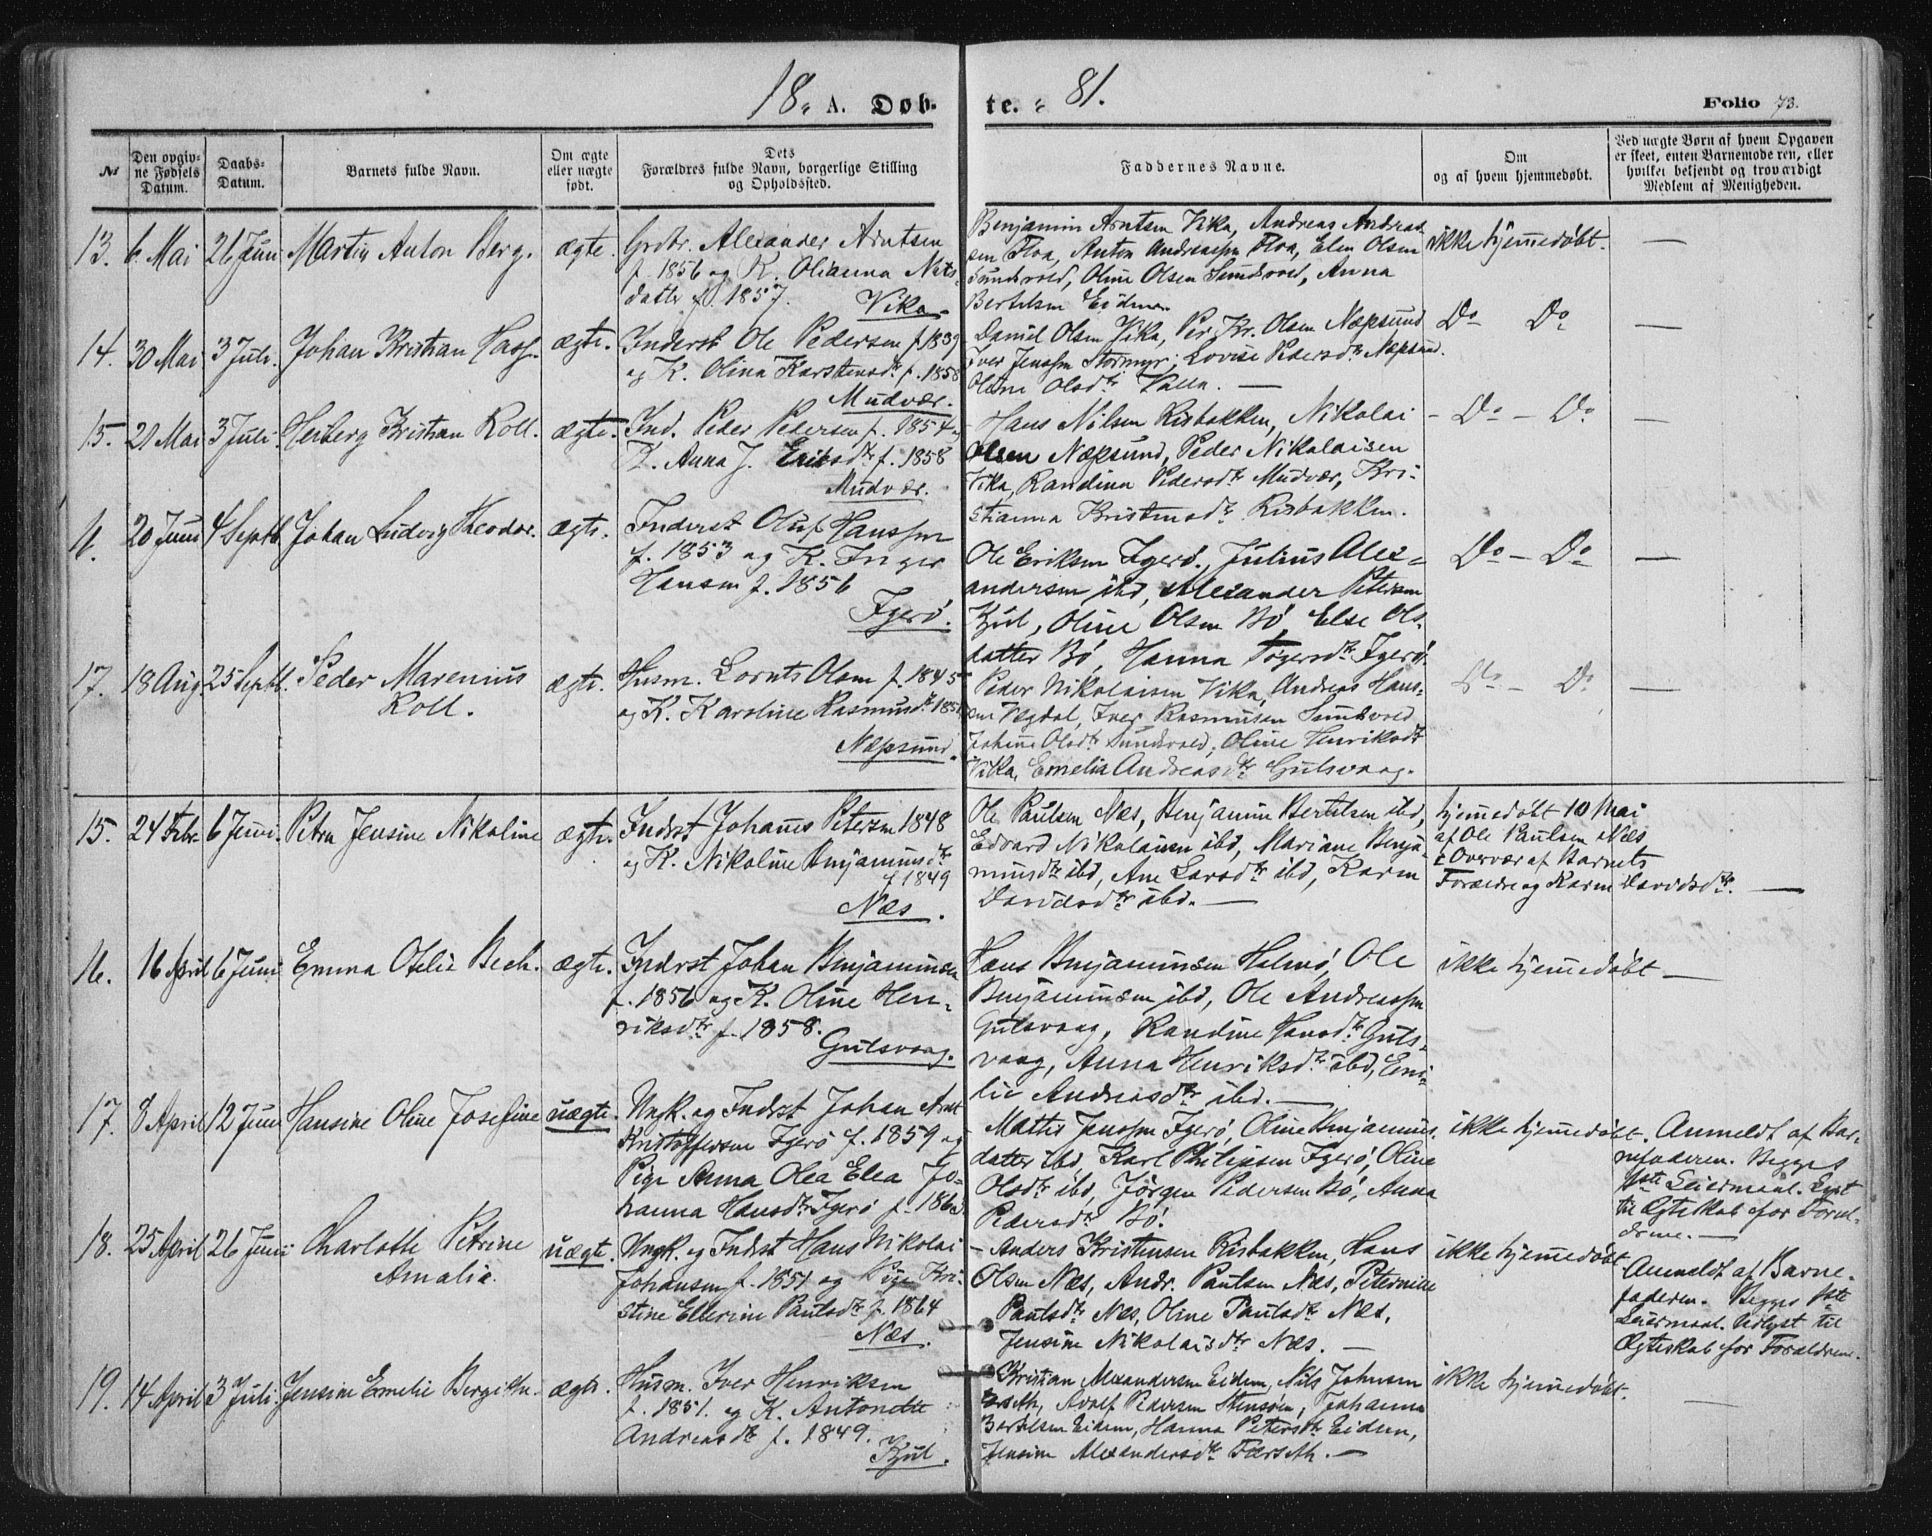 18 A. Døb-
te. 81.
Folio 73.
No
Den opgiv-
ne Fødsels
Datum.
Daabs-
Datum.
Barnets fulde Navn.
Om ægte
eller uægte
født.
Dets
Forældres fulde Navn, borgerlige Stilling
og Opholdssted.
Faddernes Navne.
Om
og af hvem hjemmedøbt.
Ved uægte Børn af hvem Opgaven
er skeet, enten Barnemoderen, eller
hvilket bekjendt og troværdigt
Medlem af Menigheden.
13. 6 Mai 26 Juni Martin Anton Berg. ægte.
Grdbr. Alexander Arntsen
f. 1856 og K. Olianna Nils-
datter f. 1857.
Vika.
Benjamin Arntsen Vika, Andreas Andreas-
sen Floa, Anton Andreassen Floa, Elen Olsen
Sundsvold, Oline Olsen Sundsvold, Anna
Bertelsen Eidem.
ikke hjemmedøbt. —
14. 30 Mai 3 Juli. Johan Kristian Hass. ægte.
Inderst Ole Pedersen f. 1839
og K. Olina Karstensdtr f. 1858
Mudvær.
Daniel Olsen Vika, Per Kr. Olsen Næpsund
Iver Jenssen Stormyr, Lovise Pedersdtr Næpsund.
Oline Olsdtr Valla. —
Do Do —
15. 21 Mai 3 Juli Heiberg Kristian Roll. ægte.
Ind. Peder Pedersen f. 1854 og
K. Anna J. Eriksdtr f. 1858
Mudvær.
Hans Nilsen Risbakken, Nikolai
Olsen Næpsund, Peder Nikolaisen
Vika, Randina Pedersdtr Mudvær, Kri-
stianna Kristensdtr Risbakken.
- Do - Do —
16. 20 Juni 4 Septb. Johan Ludvig Theodor. ægte.
Inderst Oluf Hanssen
f. 1853 og K. Inger
Hansen f. 1856
Igerø.
Ole Eriksen Igerø, Julius Alex-
andersen ibd, Alexander Petersen
Kjul, Oline Olsen Bø, Else Ols-
datter Bø, Hanna Togersdtr Igerø.
Do - Do —
17. 18 Aug 25 Septb. Peder Marenius
Roll.
ægte.
Husm. Lornts Olsen f. 1845
og K. Karoline Rasmusdtr 1851
Næpsund.
Peder Nikolaisen Vika, Andreas Hans-
sen Vegdal, Iver Rasmusen Sundsvold
Olsdtr Sundsvold, Oline Henriksdtr
Vika, Emelia Andreasdtr Gulsvaag.
Do - Do —
15. 24 Febr 6 Juni. Petra Jensine Nikoline ægte.
Indrst Johannes Petersen 1848
og K. Nikoline Benjaminsdtr
f 1849
Næs.
Ole Paulsen Næs, Benjamin Bertelsen ibd,
Edvard Nikolaisen ibd, Mariane Benja-
minsdtr ibd, Ane Larsdtr ibd, Karen
Davidsdtr ibd. —
hjemmedøbt 10 Mai
af Ole Paulsen Næs
i Overvær af Barnets
Forældre og Karen Davidsdtr. —
16. 16 April 6 Juni Emma Ofelie Bech. ægte.
Indrst Johan Benjaminsen
f. 1856 og K. Oline Hen-
riksdtr f. 1858.
Gulsvaag.
Hans Benjaminsen Holmø, Ole
Benjaminsen ibd, Ole Andreassen
Gulsvaag, Randine Hansdtr Guls-
vaag, Anna Henriksdtr ibd, Emi-
lie Andreasdtr ibd. —
ikke hjemmedøbt —
17. 3 April 12 Juni Hansine Oline Josefine uægte.
Ungk. og Indrst Johan Arnt
Kristoffersen Igerø f. 1859 og
Pige Anna Olea Elea Jo-
hanna Hansdtr Igerø f. 1860.
Mattis Jenssen Igerø, Oline Benjamins-
datter ibd, Karl Philipsen Igerø, Oline
Olsdtr ibd, Jørgen Pedersen Bø, Anna
Pedersdtr Bø.
ikke hjemmedøbt.
Anmeldt af Bar-
nefaderen. Begges
1ste Leiermaal. Lyst
til Ægteskab for Foræl-
drene. —
18. 25 April 26 Juni Charlotte Petrine
Amalia.
uægte.
Ungk. og Indrst Hans Nikolai
Johansen f. 1851 og Pige Kri-
stine Ellerine Paulsdtr f. 1864
Næs.
- Anders Kristensen Risbakken, Hans
Olsen Næs, Andr. Paulsen Næs, Peternille
Paulsdtr Næs, Oline Paulsdtr Næs,
Jensine Nikolaisdtr Næs. —
ikke hjemmedøbt
Anmeldt af Barne-
faderen. Begges 1ste
Leiermaal. Udlyst til
Ægteskab for Forældrene.
19. 14 April 3 Juli. Jensine Emelie Bergithe. ægte.
Husm. Iver Henriksen
f. 1851. og K. Antonette
Andreasdtr f. 1849.
Kjul.
Kristian Alexandersen Eidem, Nils Johnsen
Adolf Pedersen Stensøien, Johanna
Bertelsen Eidem, Hanna Petersdtr Eidem,
Jensine Alexandersdtr Færseth. —
ikke hjemmedøbt. —